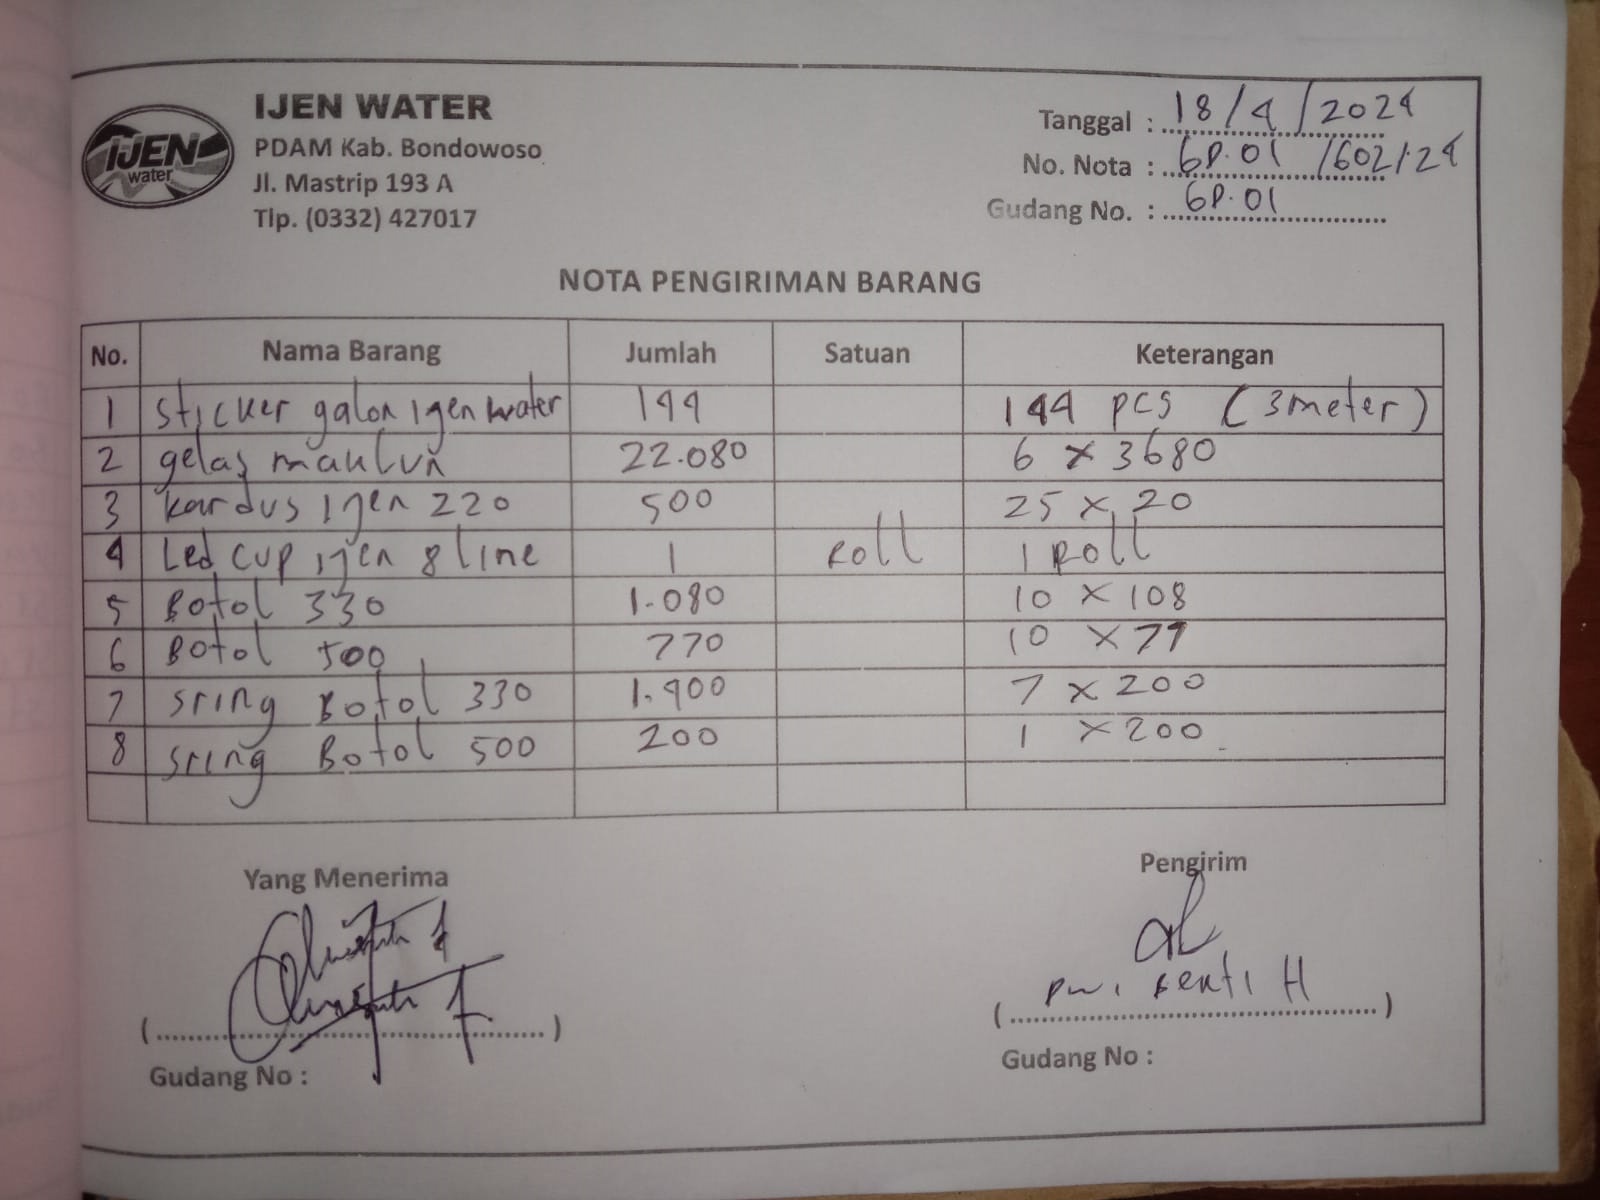 IJEN
water
IJEN WATER
PDAM Kab. Bondowoso
Jl. Mastrip 193 A
Tlp. (0332) 427017
Tanggal : 18/4/2024
No. Nota : GP.01 /602/.24
Gudang No. : GP.01
NOTA PENGIRIMAN BARANG
No. Nama Barang Jumlah Satuan Keterangan
1 sticker galon ijen water 144 144 pcs (3 meter)
2 gelas maklun 22.080 6 x 3680
3 kardus ijen 220 500 25 x 20
4 Led cup ijen 8 line 1 Roll 1 Roll
5 Botol 330 1.080 10 x 108
6 Botol 500 770 10 x 77
7 sring Botol 330 1.400 7 x 200
8 sring Botol 500 200 1 x 200
Yang Menerima
Pengirim
H
Gudang No :
Gudang No :